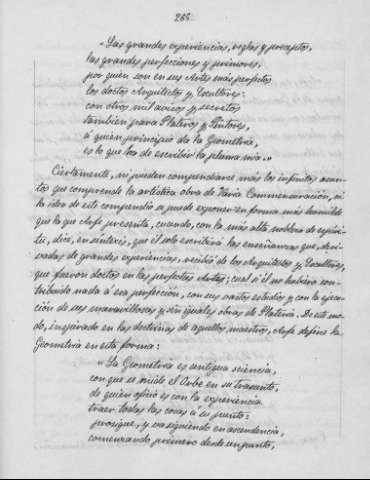 286.
"Las grandes experiencias, reglas y preceptos,
las grandes perfecciones y primores,
por quien son en sus Artes más perfectos
los doctos Arquitectos y Escultores:
con otros mil avisos y secretos
tambien para Plateros y Pintores,
á quien principio da la Geometría,
es lo que ha de escribir la pluma mia."
Ciertamente, ni pueden compendiarse más los infinitos asun-
tos que comprende la artística obra de Varia Commensuración, ni
la idea de este compendio se puede exponer en forma más humilde
que la que Arfe presenta, cuando, con la más alta nobleza de espíri-
tu, dice, en síntesis, que él solo escribirá las enseñanzas que, deri-
vadas de grandes experiencias, recibió de los Arquitectos y Escultores,
que fueron doctos en las perfectas Artes; cual si él no hubiera con-
tribuido nada á esa perfección, con sus vastos estudios y con la ejecu-
ción de sus maravillosas y sin iguales obras de Platería. De este mo-
do, inspirado en las doctrinas de aquellos maestros, Arfe define la
Geometría en esta forma:
"La Geometría es antigua sciencia,
con que se mide el Orbe en su trasunto,
de quien oficio es con la experiencia
traer todas las cosas á su punto:
prosigue, y va siguiendo en ascendencia,
comenzando primero desde un punto,